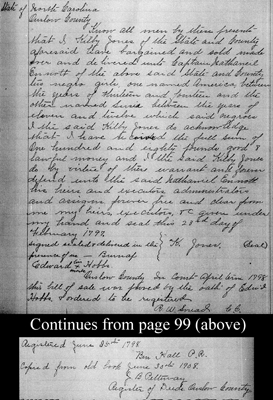 State of North Carolina
Onslow County
Know all men by these presents
that I Kilby Jones of the State and County
aforesaid have bargained and sold made
over and delivered unto Captain Nathaniel
Emmott of the above said State and County
two negro girls one named between
the years of thirteen and fourteen and the
other named between the years of
eleven and twelve which said negroes
I the said Kilby Jones do acknowledge
that I have the full sum of
One hundred and eighty pounds good &
lawful money and I the said Kilby Jones
do by virtue of these warrant and forever
defend unto the said Nathaniel Emmott
his heirs and executors administrators
and assigns forever free and clear from
me my heirs, executors, &c given under
my hand and seal this 28th day of
February 1797.
signed sealed & delivered in the K. Jones. (Seal)
presence of us
Edward Hobbs
Onslow County In Court April term 1798
this bill of sale was proved by the oath of Edwd
Hobbs & ordered to be registered
R. W. Snead C.C.
Continues from page 99 (above)
Registered June 26th 1798
Ben Hall P.R.
Copied from old book June 30th 1908.
J B Petteway
Register of Deeds Onslow County